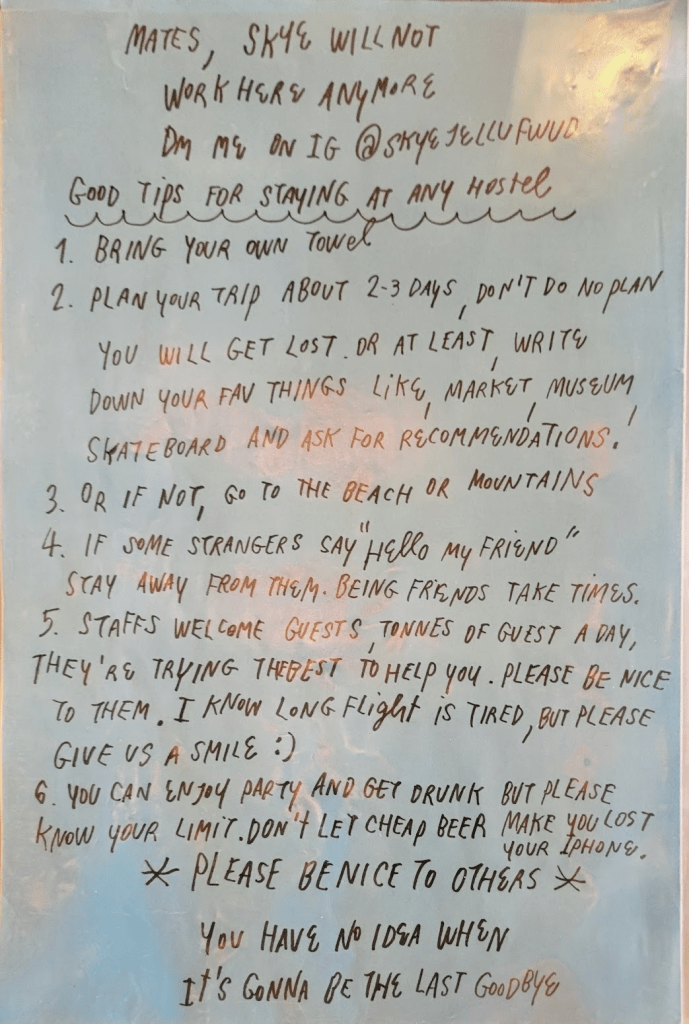 MATES, SKYE WILL NOT
WORK HERE ANYMORE
DM ME ON IG @SKYEJELLUFWUD
GOOD TIPS FOR STAYING AT ANY HOSTEL
1. BRING YOUR OWN TOWEL
2. PLAN YOUR TRIP ABOUT 2-3 DAYS, DON'T DO NO PLAN
YOU WILL GET LOST. OR AT LEAST, WRITE
DOWN YOUR FAV THINGS LIKE, MARKET, MUSEUM,
SKATEBOARD AND ASK FOR RECOMMENDATIONS.
3. OR IF NOT, GO TO THE BEACH OR MOUNTAINS
4. IF SOME STRANGERS SAY "HELLO MY FRIEND"
STAY AWAY FROM THEM. BEING FRIENDS TAKE TIMES.
5. STAFFS WELCOME GUESTS, TONNES OF GUEST A DAY,
THEY'RE TRYING THEBEST TO HELP YOU. PLEASE BE NICE
TO THEM. I KNOW LONG FLIGHT IS TIRED, BUT PLEASE
GIVE US A SMILE :)
6. YOU CAN ENJOY PARTY AND GET DRUNK BUT PLEASE
KNOW YOUR LIMIT. DON'T LET CHEAP BEER MAKE YOU LOST
YOUR IPHONE.
* PLEASE BE NICE TO OTHERS *
YOU HAVE NO IDEA WHEN
IT'S GONNA BE THE LAST GOODBYE